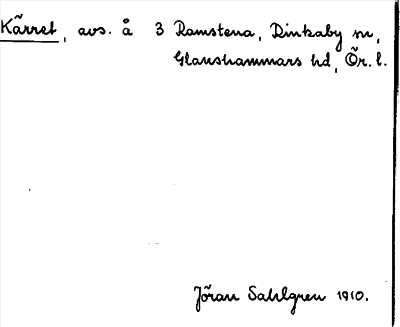 Kärret, avs. å 3 Ramstena, Rinkaby sn,
Glanshammars hd, Ör. l.
Jöran Sahlgren 1910.